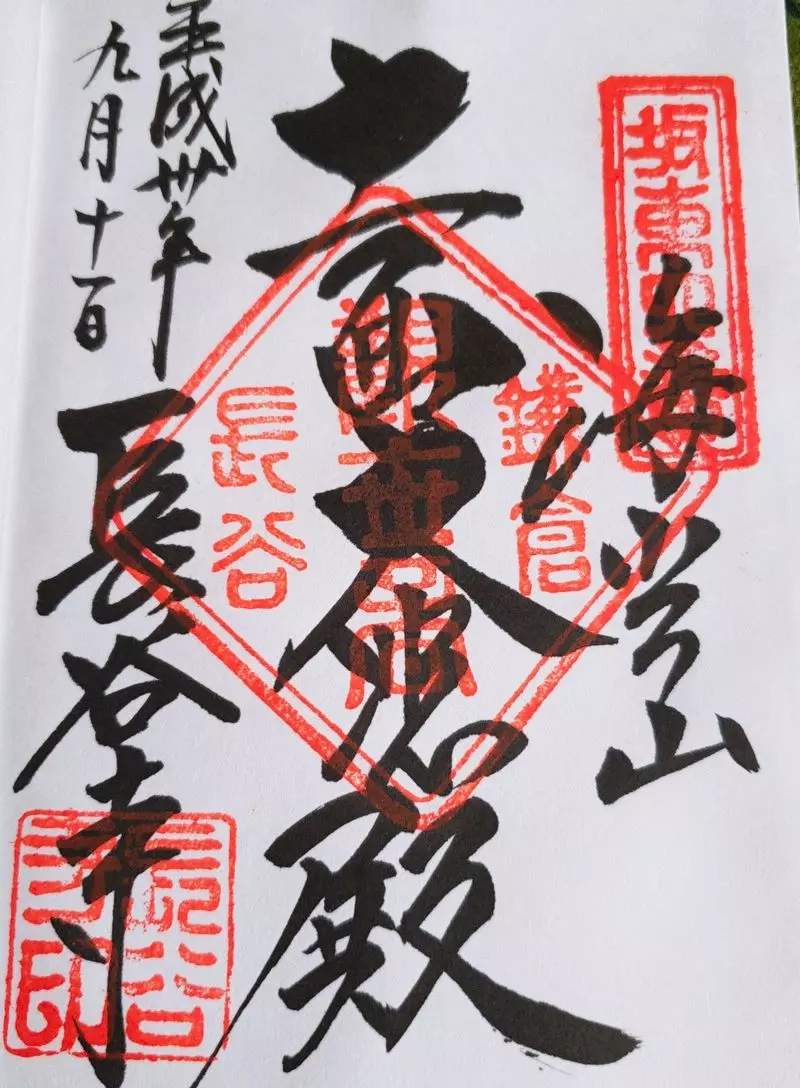 坂東四番
海光山
十一面大悲殿
鎌倉
觀世音
長谷
長谷寺
長谷寺印
平成卅年
九月十一日